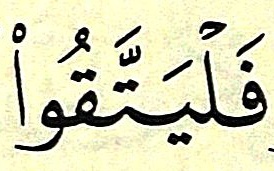 فَلۡيَتَّقُواْ